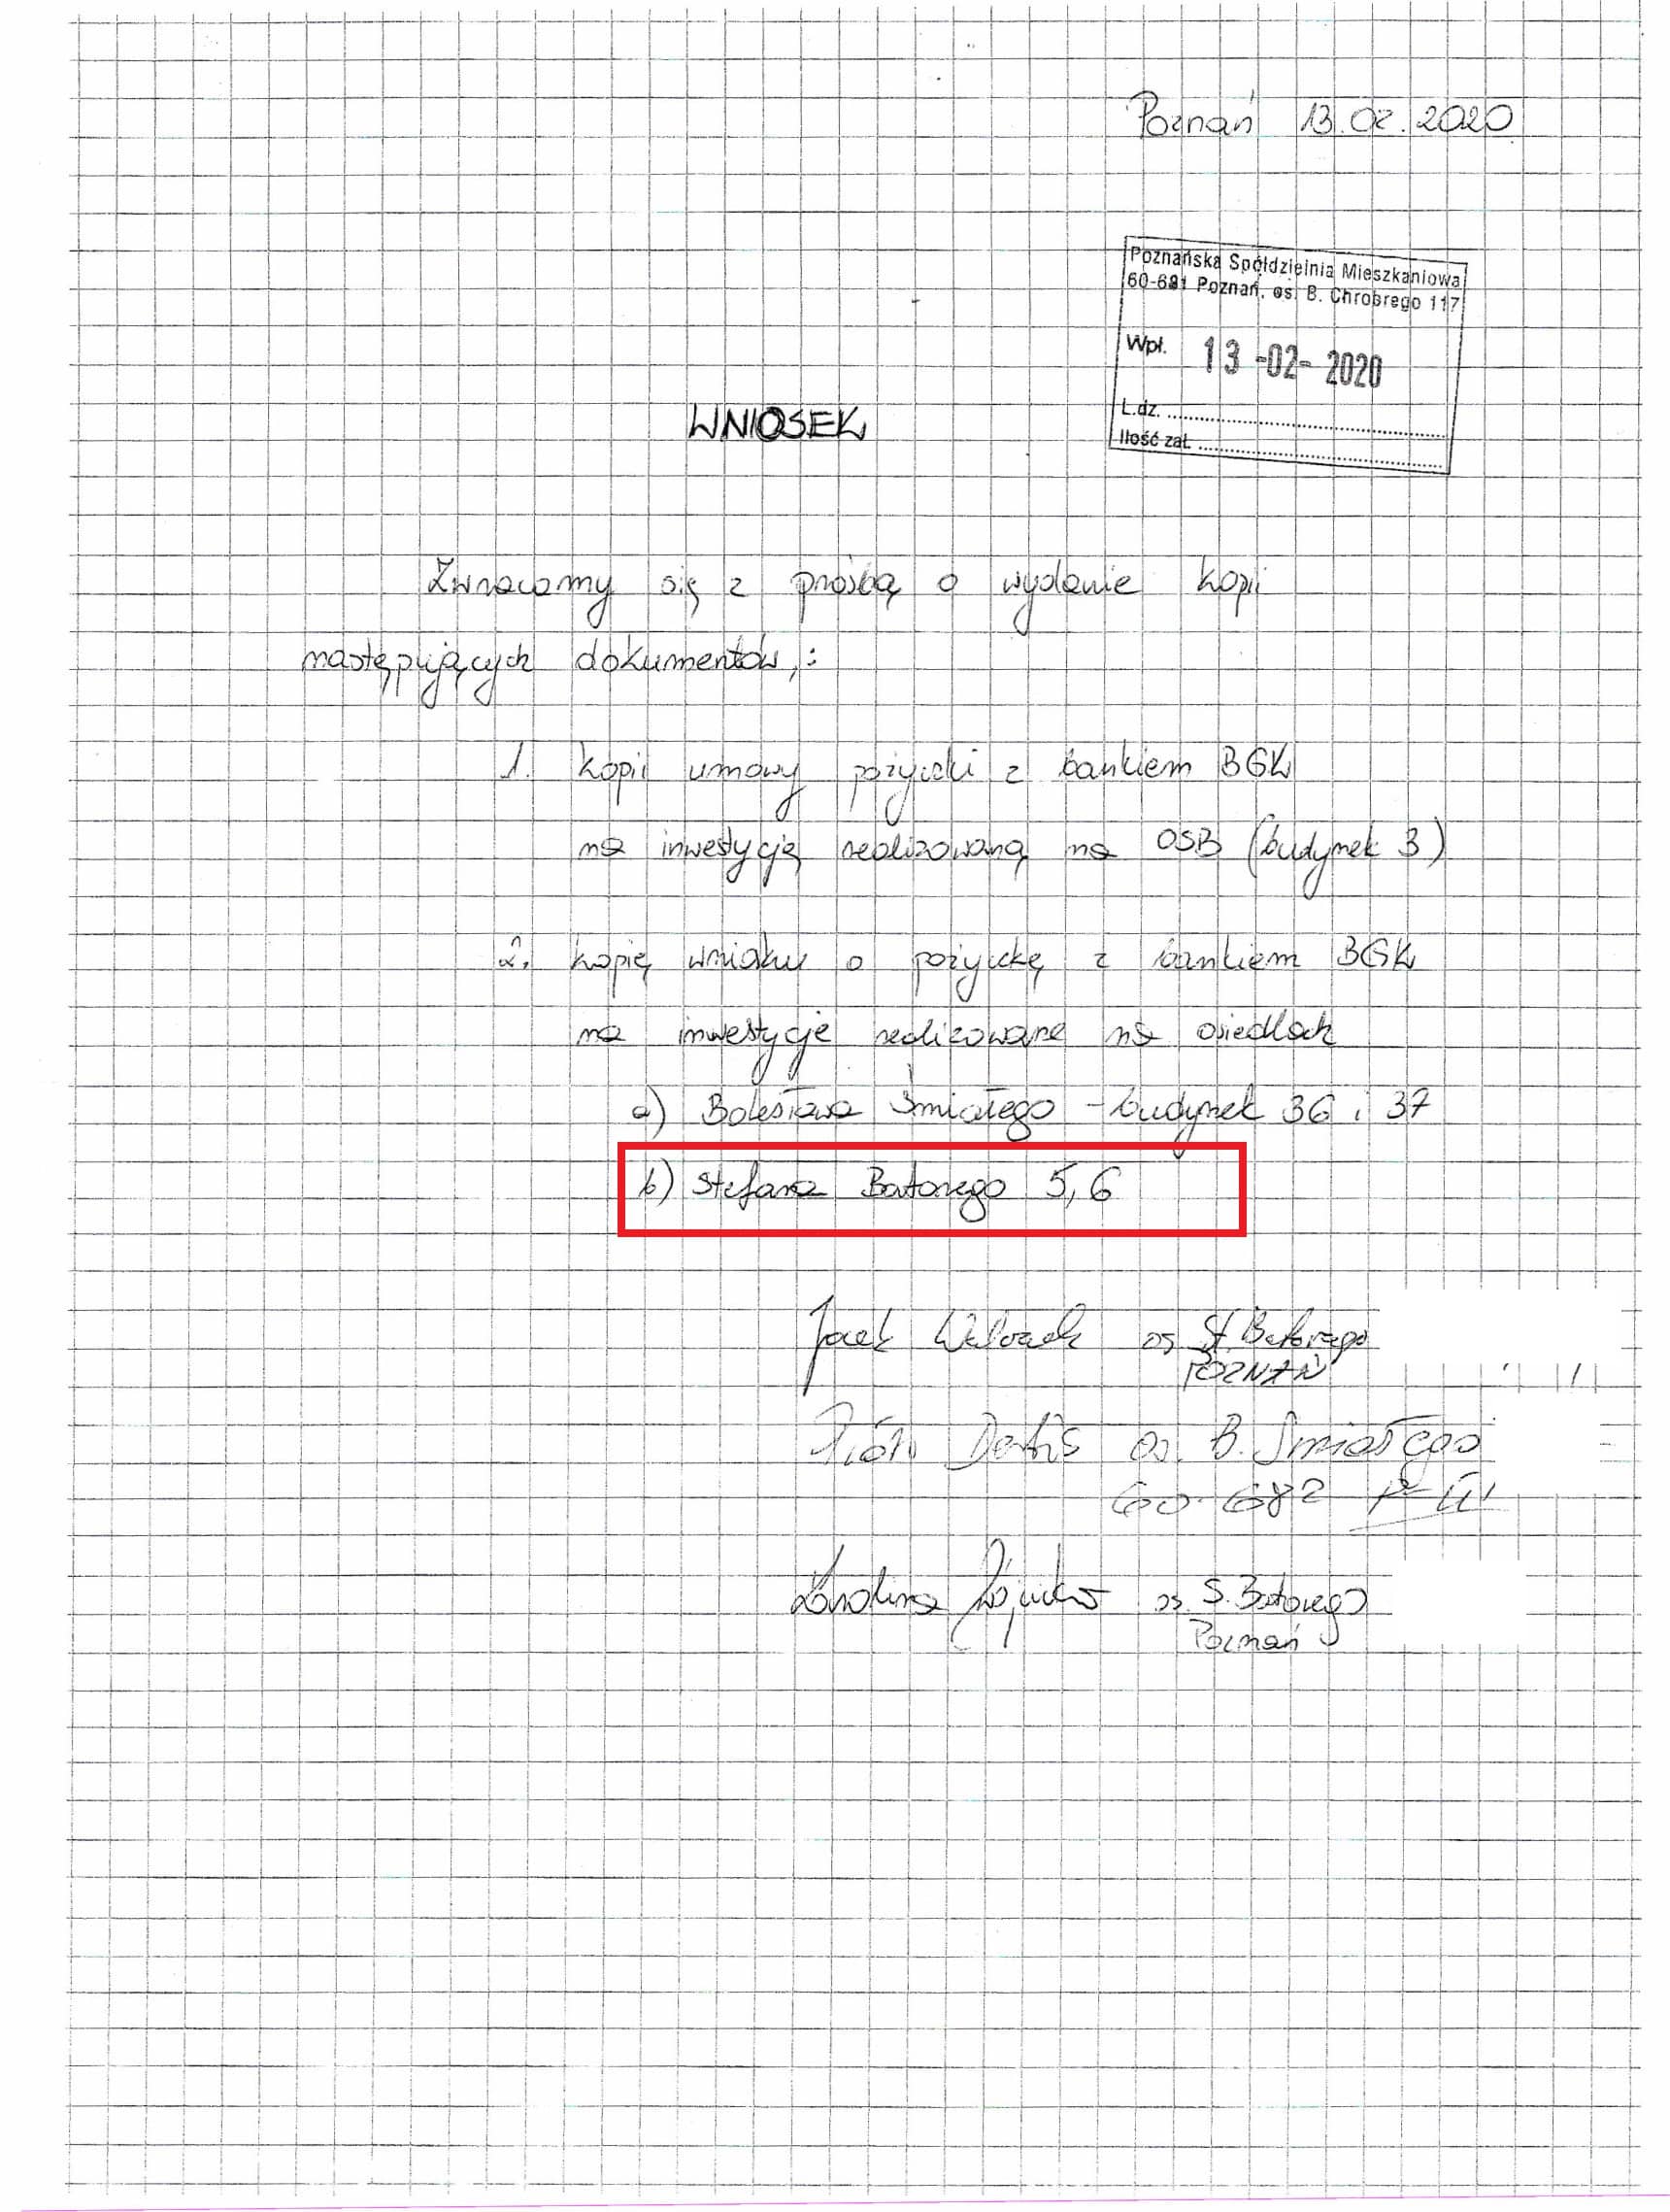 Poznań 13.02.2020
Poznańska Spółdzielnia Mieszkaniowa
60-681 Poznań, os. B. Chrobrego 117
Wpł. 13-02-2020
L.dz.
Ilość zał.
WNIOSEK
Zwracamy się z prośbą o wydanie kopii
następujących dokumentów,:
1. kopii umowy pożyczki z bankiem BGK
na inwestycję realizowaną na OSB (budynek 3)
2. kopię wniosku o pożyczkę z bankiem BGK
na inwestycje realizowane na osiedlach
a) Bolesława Śmiałego - budynek 36 i 37
b) Stefana Batorego 5, 6
Jacek os St. Batorego
POZNAŃ
Piotr os. B. Śmiałego
60-682
Karolina os. S. Batorego
Poznań